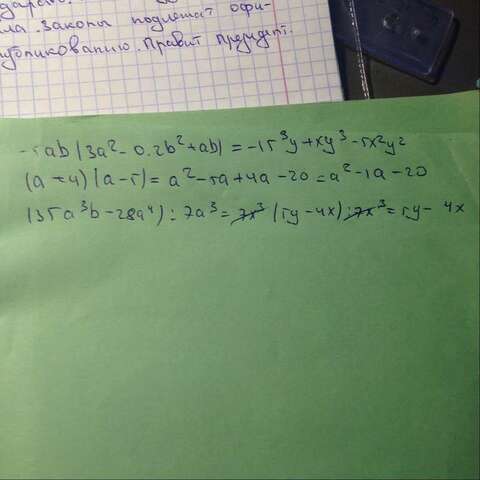 ла. Законы подлежат офи-
публикованию. Правит президент.
-5ab(3a²-0.2b²+ab)=-15³y+xy³-5x²y²
(a+4)(a-5)=a²-5a+4a-20=a²-1a-20
(35a³b-28a⁴):7a³=7x³(5y-4x):7x³=5y-4x